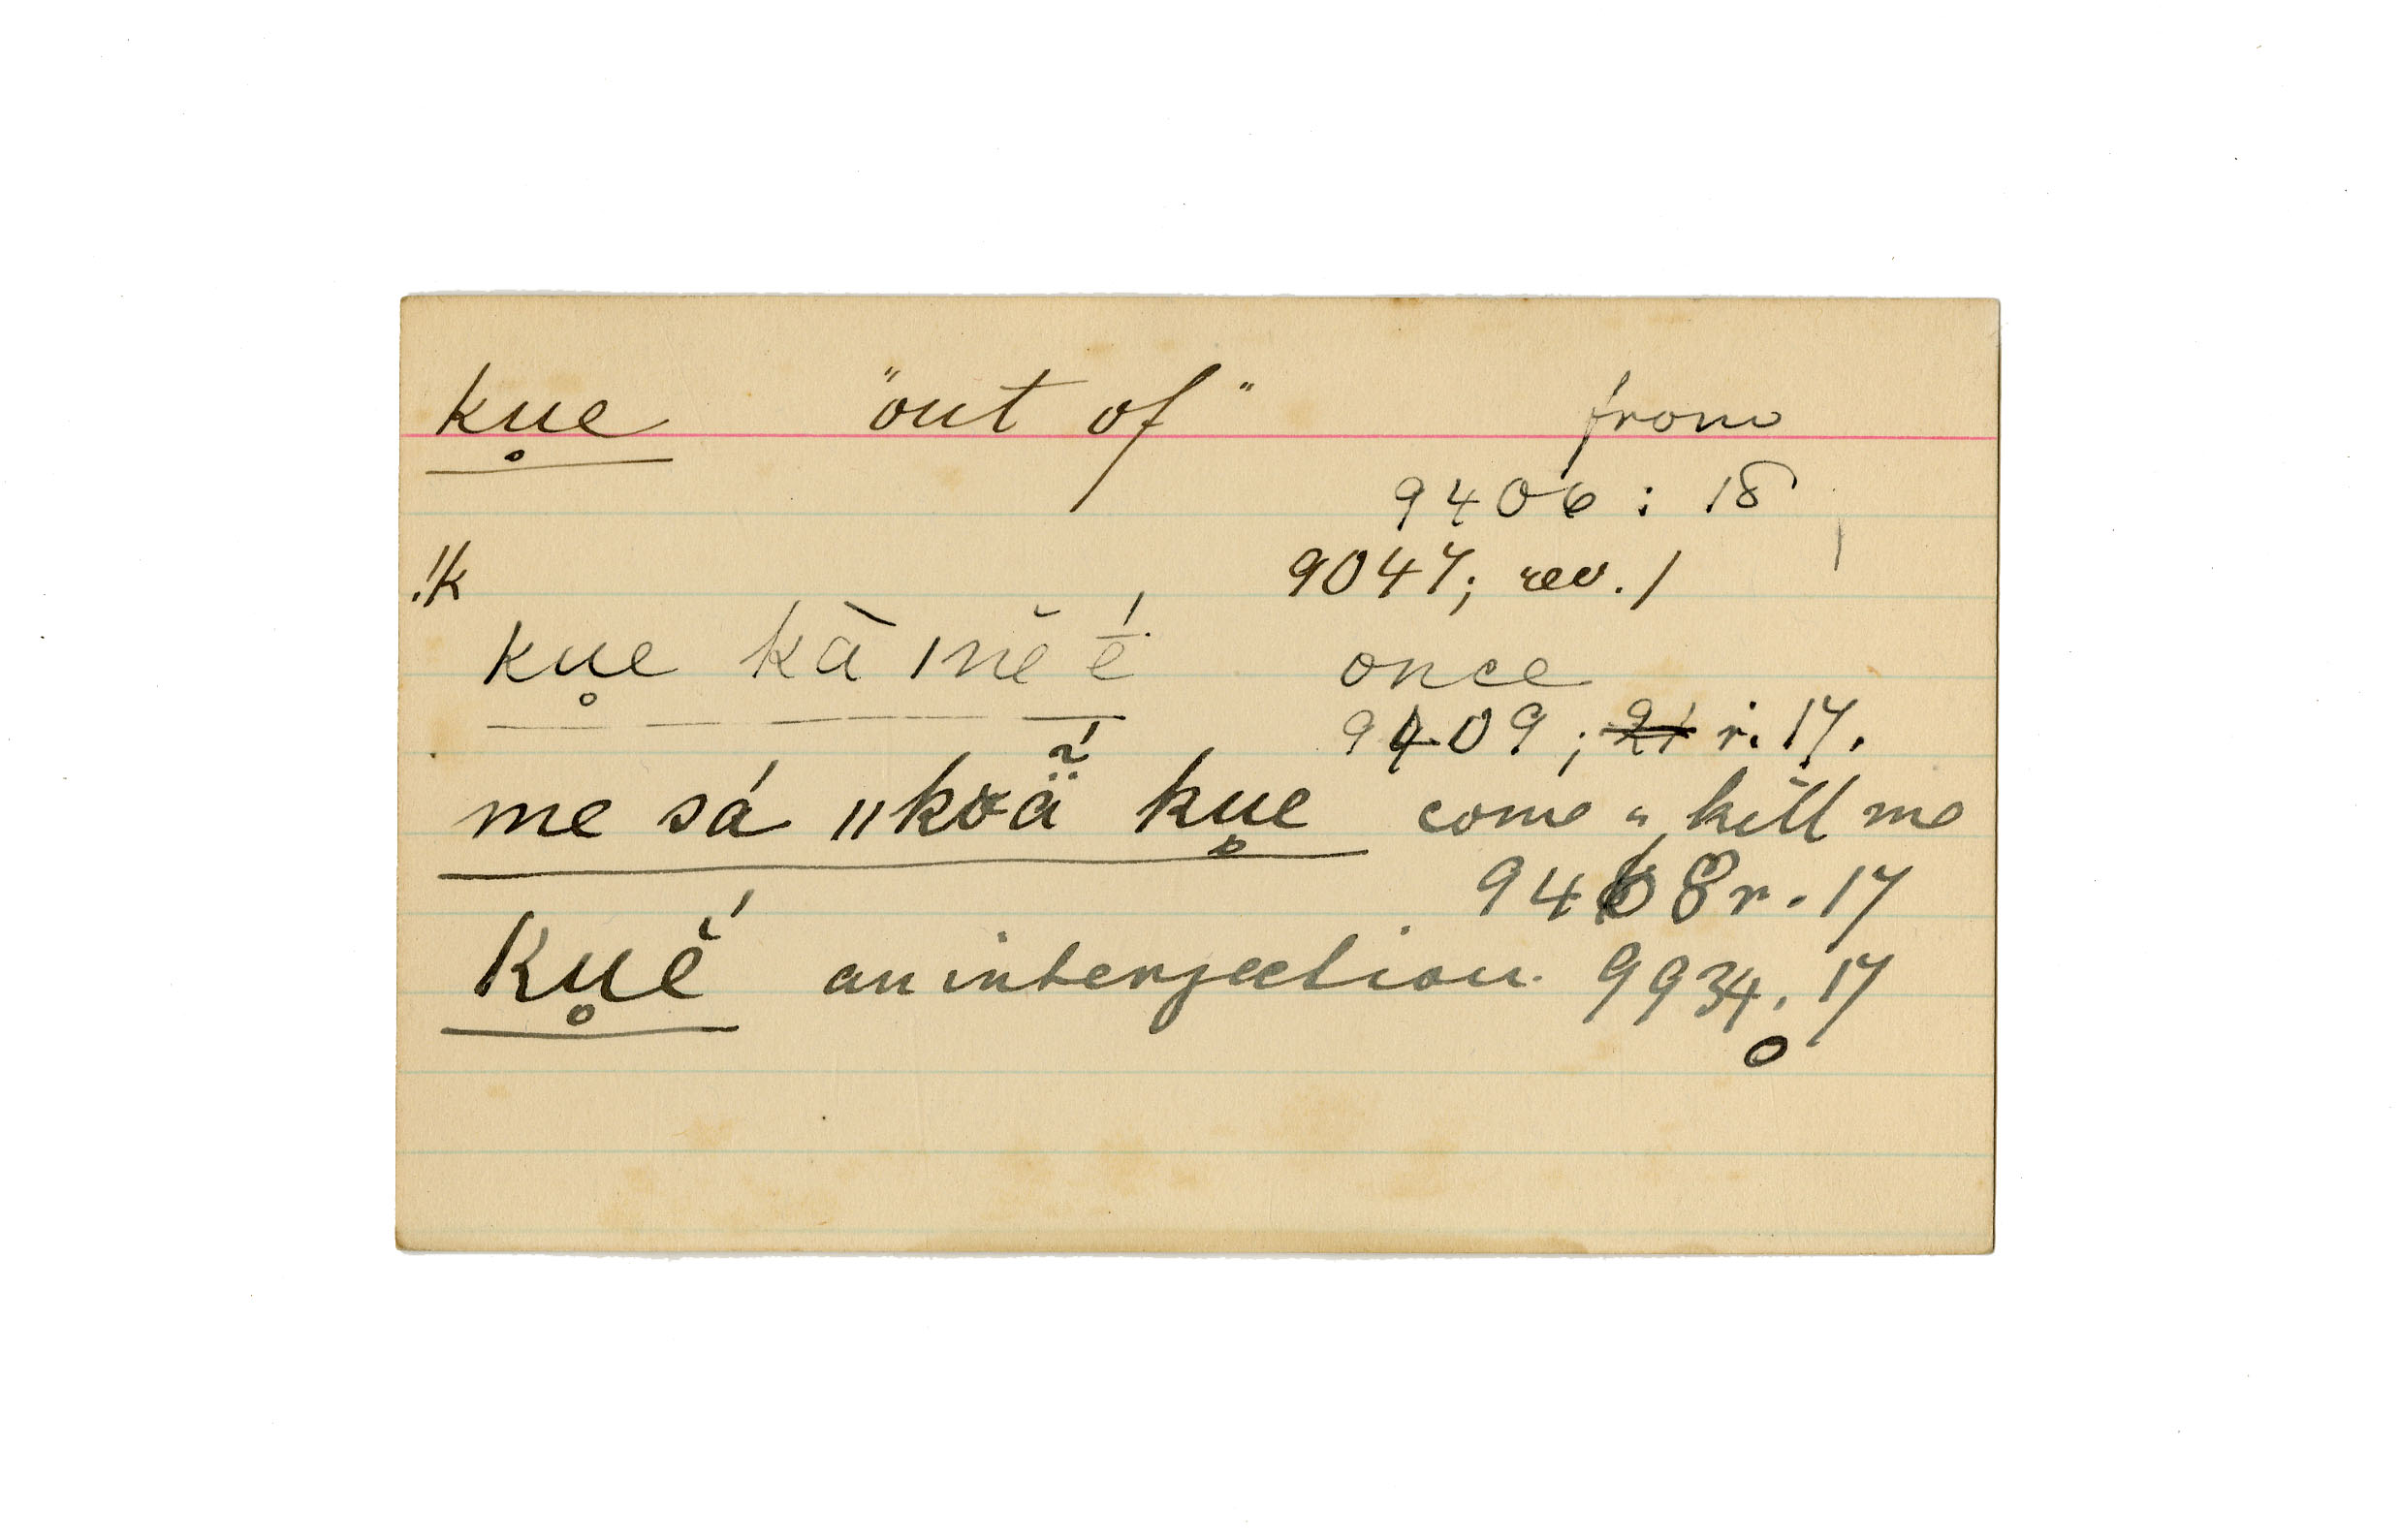 ku̥e "out of" from
9406 : 18
!k 9047; rev. 1
ku̥e kā ıně ḗ once
9409 ; 21 r. 17.
me sá ııkxä̃́ ku̥e come " kill me
9408 r. 17
Ku̥ě́ an interjection. 9934. 17